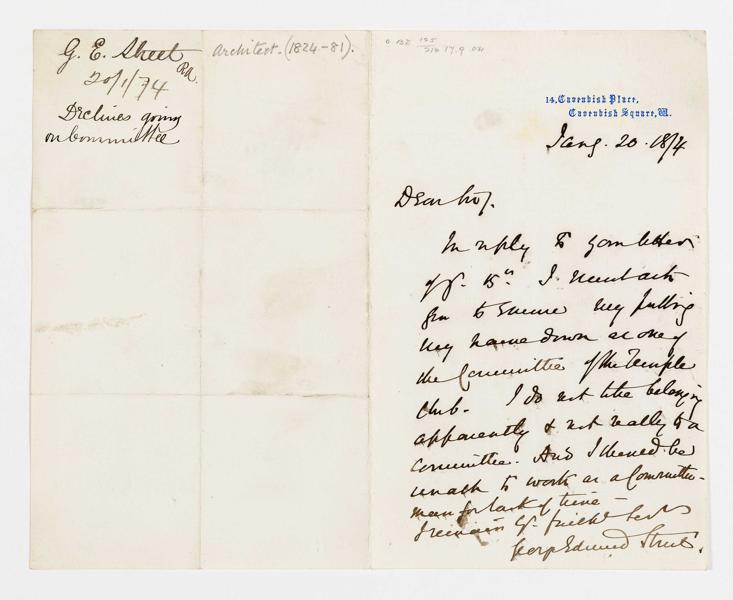 G. E. Street
RA.
20/1/74
Declines going
on Committee
Architect - (1824-81).
14, Cavendish Place,
Cavendish Square, W.
Jany. 20. 1874
Dear Sir,
In reply to your letter
of yr. 15th I must ask
you to excuse my putting
my name down as one of
the Committee of the Temple
Club. I do not like belonging
apparently & not really to a
Committee. And I should be
unable to work as a Committee-
man for lack of time -
I remain yr. faithl. Servt
George Edmund Street.